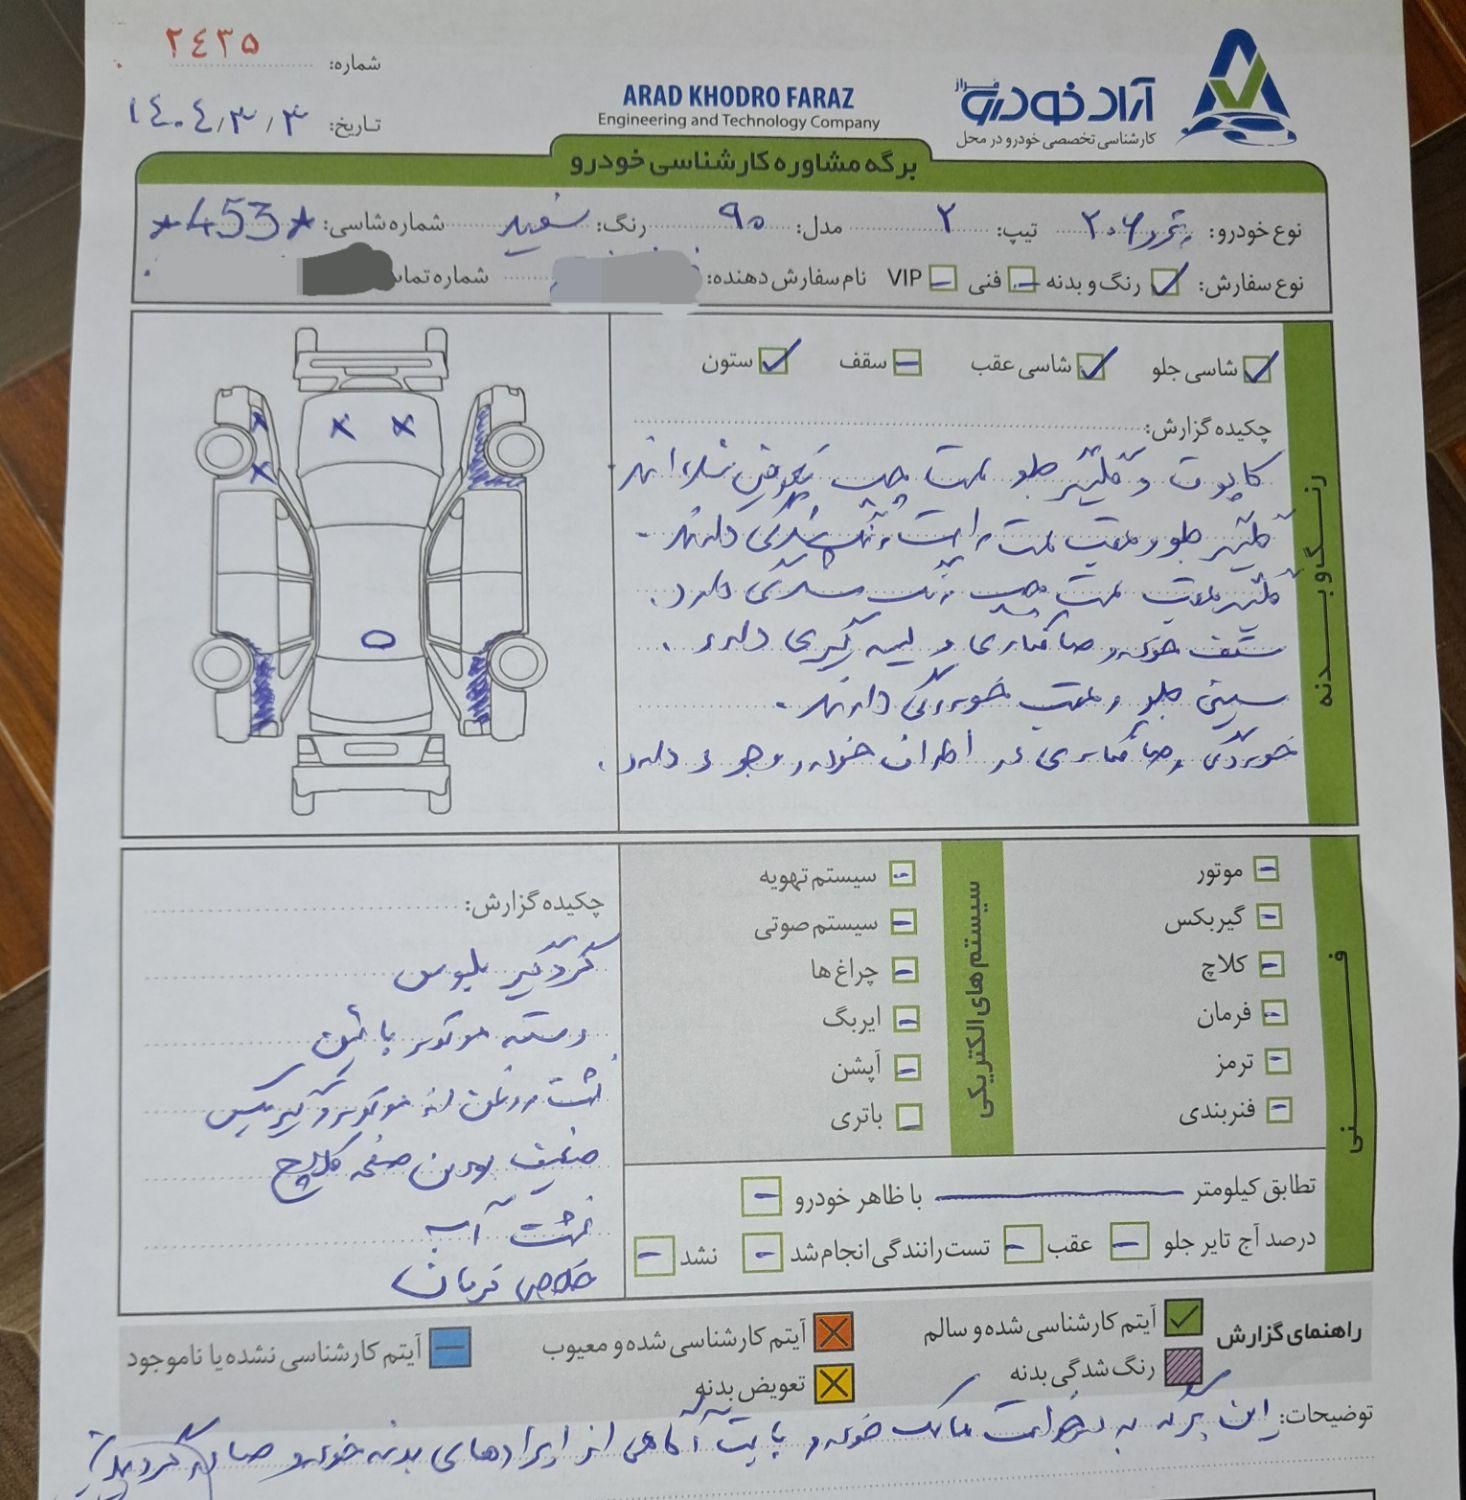 شماره: ۲٤۳۵
تاریخ: ۱٤۰٤/۳/۳
آراد خودرو فراز
کارشناسی تخصصی خودرو در محل
ARAD KHODRO FARAZ
Engineering and Technology Company
برگه مشاوره کارشناسی خودرو
نوع خودرو: پژو ۲۰۶ تیپ: ۲ مدل: ۹۰ رنگ: سفید شماره شاسی: *453*
نوع سفارش: رنگ و بدنه فنی VIP نام سفارش دهنده: شماره تماس
رنگ و بدنه
شاسی جلو شاسی عقب سقف ستون
چکیده گزارش:
کاپوت و گلگیر جلو سمت چپ تعویض شده‌اند
گلگیر جلو و عقب سمت راست رنگ شدگی دارند.
گلگیر عقب سمت چپ رنگ شدگی دارد.
سقف خودرو صافکاری و لیسه گیری دارد.
سینی جلو و عقب خوردگی دارند.
خوردگی و صافکاری در اطراف خودرو وجود دارد.
فنی
موتور
گیربکس
کلاچ
فرمان
ترمز
فنربندی
سیستم های الکتریکی
سیستم تهویه
سیستم صوتی
چراغ ها
ایربگ
آپشن
باتری
تطابق کیلومتر با ظاهر خودرو
درصد آج تایر جلو عقب تست رانندگی انجام شد نشد
چکیده گزارش:
گردگیر پلوس
دسته موتور پائین
نشت روغن از موتور و گیربکس
ضعیف بودن صفحه کلاچ
نشت آب
خلاصی فرمان
راهنمای گزارش آیتم کارشناسی شده و سالم آیتم کارشناسی شده و معیوب آیتم کارشناسی نشده یا ناموجود
رنگ شدگی بدنه تعویض بدنه
توضیحات: این برگه به درخواست مالک خودرو بابت آگاهی از ایرادهای بدنه خودرو صادر گردید